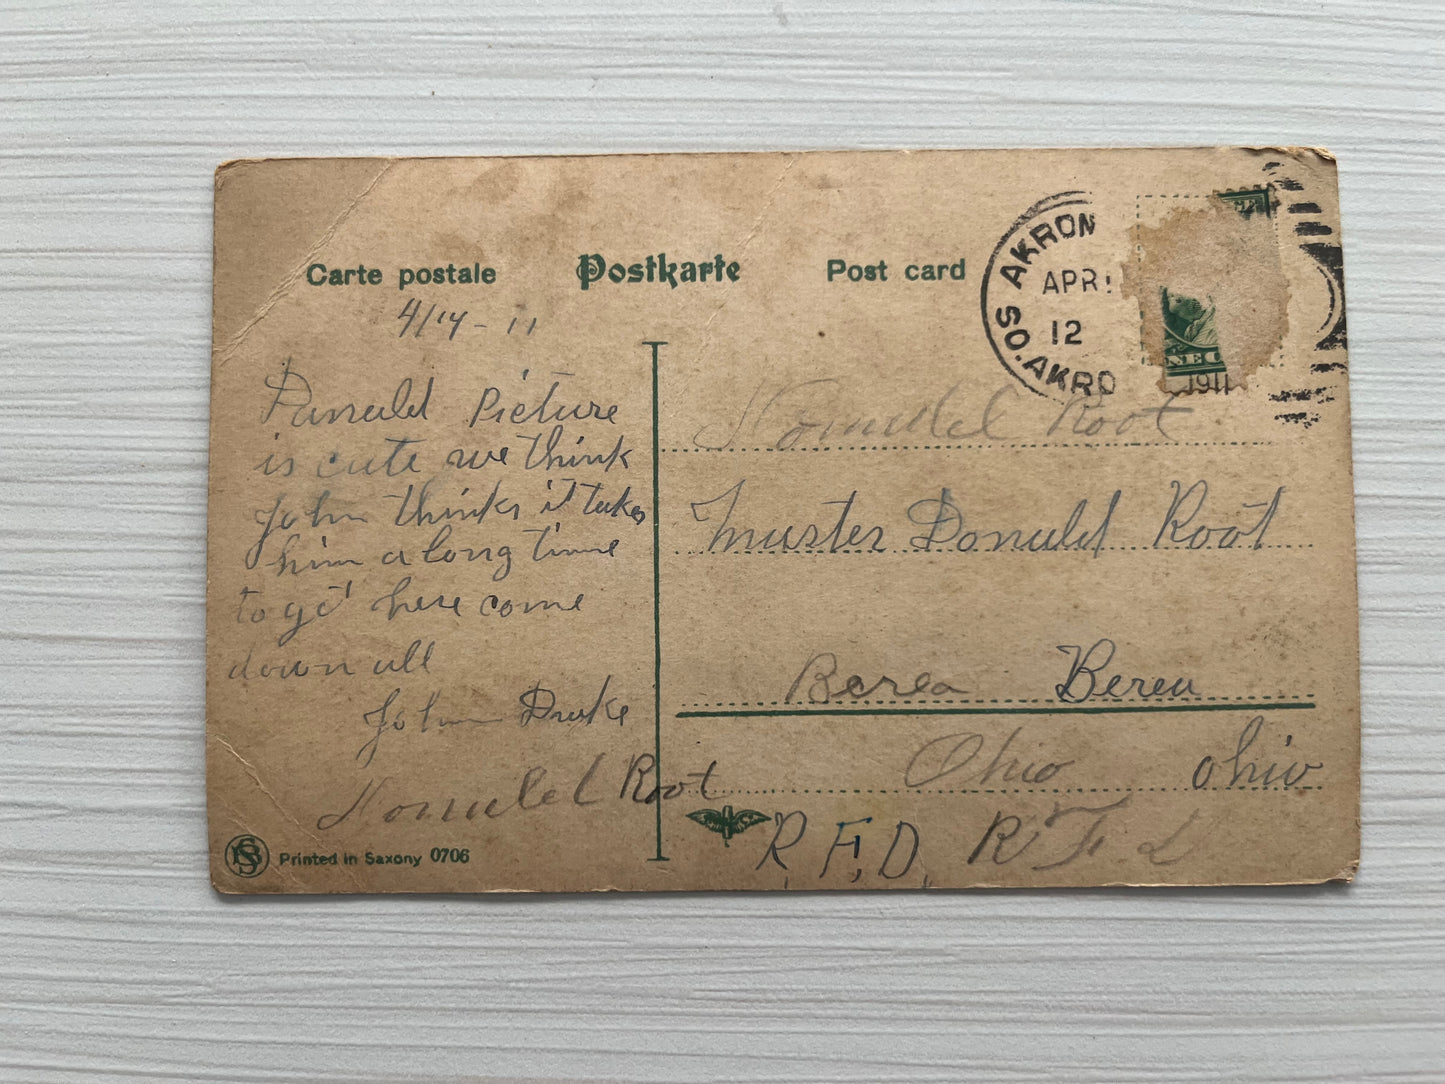 Carte postale Postkarte Post card
SO. AKRON
APR
12
1911
SO. AKRO
NE
4/14-11
Donald Picture
is cute we think
John thinks it takes
him a long time
to get here come
down all
John Drake
Donald Root
Donald Root
Master Donald Root
Berea Berea
Ohio Ohio
R.F.D. R.F.D
NS
Printed in Saxony 0706